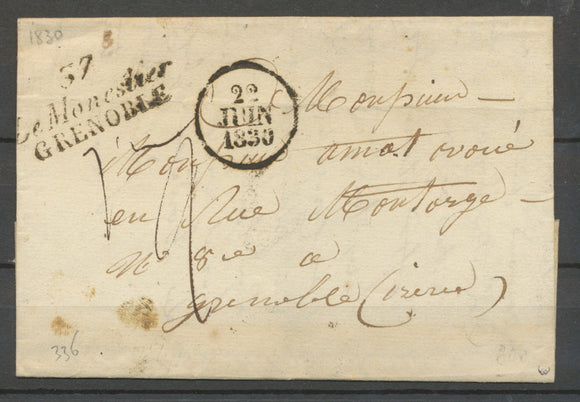 1830
37
Le Monestier
GRENOBLE
22
JUIN
1830
Monsieur
Monsieur amat avoué
en Rue Montorge
N° 8 a
grenoble (isere)
336